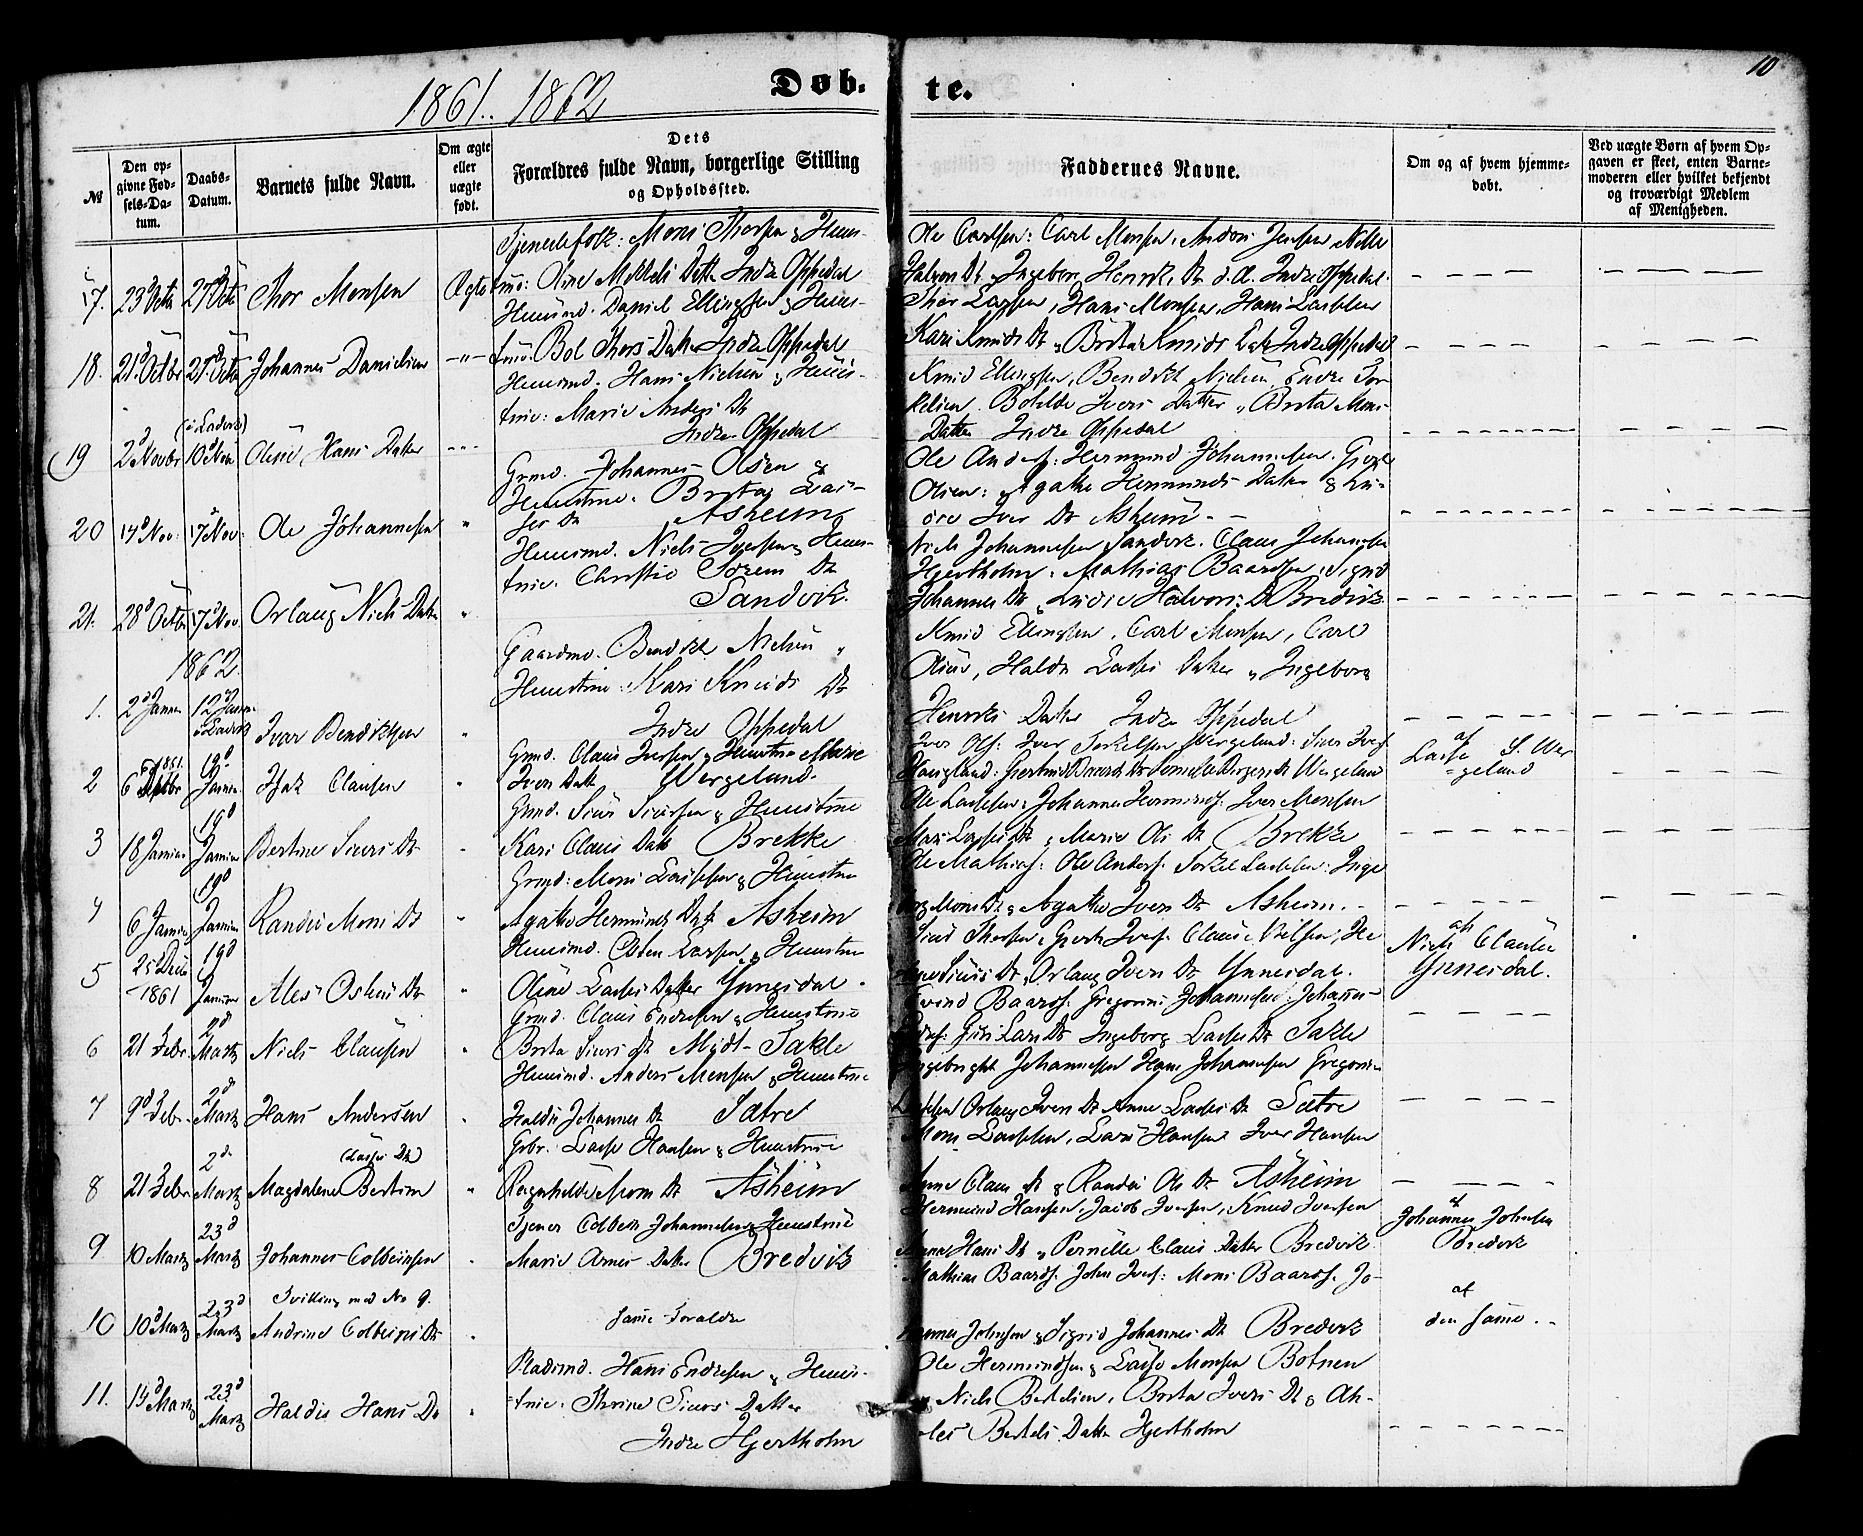 1861. 1862
Døb-te.
10
№
Den opgivne Fødsels-Datum.
Daabs-Datum.
Barnets fulde Navn.
Om ægte eller uægte født.
Dets Forældres fulde Navn, borgerlige Stilling og Opholdssted.
Faddernes Navne.
Om og af hvem hjemmedøbt.
Ved uægte Børn af hvem Opgaven er skeet, enten Barnemoderen eller hvilket bekjendt og troværdigt Medlem af Menigheden.
17. 23d Octb 27d Octb Thor Monsen Ægte
Tjenestefolk: Mons Thorsen & Huus-
tru: Oline Mikkels Datter Indre Oppedal
Ole Carlsen: Carl Monsen, Anders Jensen Nille
Halvors Dt Ingeborg Henrik. Dt Indre Oppedal.
18. 21d Octbr 27d Octb Johannes Danielsen
Huusmd. Daniel Ellingsen & Huus-
tru: Bol Thors Datter Indre Oppedal
Thor Larsen, Hans Monsen, Hans Lassesen
Kari Knuds Dt & Brita Knuds Datr Indre Oppedal
19 2d Novbr 10d Nov Oline Hans Datter
Huusmd. Hans Nielsen & Huus-
true: Marie Anders Dt
Indre Oppedal
Knud Ellingsen, Bendikt Nielsen, Endre Tor-
kelsen. Botilde Ivers Datter & Brita Mons
Datter Indre Oppedal
20 14d Nov 17d Nov. Ole Johannesen "
Grmd. Johannes Olsen &
Huustrue. Brita Las-
ses Dt Asheim
Ole Anders: Hermund Johannesen. Gjert
Olsen: Agathe Hermunds Datter & Lu-
sie Iver Dt Asheim
21. 28d Octbr 17d Nov Orlaug Niels Datter "
Huusmd. Niels Iversen & Huus-
true. Christie Sørens Dt
Sandvik.
Niels Johannesen Sandvik. Claus Johannesen
Hjertholm. Mathias Baardsen, Sigrid
Johannes Dt & Lusie Halvors Dt Bredvik
1862.
1. 2d Januar 12d Januar Ivar Bendiktsen "
Gaardmd. Bendikt Nielsen "
Huustrue. Kari Knuds Dt
Indre Oppedal
Knud Ellingsen, Carl Monsen, Carl
Olsen, Haldis Lasses Datter & Ingeborg
Henriks Datter Indre Oppedal
2 6 1861. 19d Januar Isak Clausen "
Grmd. Claus Iversen & Huustrue Marie
Ivers Datter Wergeland.
Iver Ols: Iver Torkelsen Wergeland: Siurs Ivers
af Lasse S. Wer-
=geland
3 18 Januar 19d Januar Bertine Siurs Dt
Grmd. Siur Siursen & Huustrue
Kari Claus Datt Brekke
Ole Lassesen: Johannes Hermunds. Iver Monsen
Mari Lasses Dt & Marie Ols Dt Brekke
4 6 Januar 19d Januar Randi Mons Dt
Grmd: Mons Lassesen & Huustrue
Agathe Hermunds Datt Asheim
Ole Mathias: Ole Anders. Torkel Lassesen: Inge-
borg Mons Dt & Agathe Ivers Dt Asheim.
5 25 Decb 1861 19d Januar Ales Ostens Dt
Huusmd. Osten Larsen & Huustrue
Oline Lasses Datter Ynnesdal.
Siur Thorsen, Gjert Ivers. Claus Nilsen, He-
Siurs Dt Orlaug Ivers Dt Ynnesdal.
af Niels Clausen
Ynnesdal.
6 21 Febr 2d Marts Niels Clausen
Grmd. Claus Endresen & Huustrue
Brita Siurs Dt Midt-Takle
Eivind Baards. Gregorius Johannesen: Johannes
Lars Dt Ingeborg Lasses Dt Takle
7 9d Febr. 2d Marts Hans Andersen
Huusmd. Anders Monsen & Huustrue
Haldis Johannes Dt Sætre
Ingebright Johannesen Hans Johannesen Gregorius
Lassesen Orlaug Ivers Dt Anne Lasses Dt Sætre
8 21 Febr 2d. Marts Magdalene Bertine (Lasses Dt) "
Grbr. Lasse Hansen & Huustrue
Ragnhilde Mons Dt Asheim
Mons Lassesen, Lars Hansen Iver Hansen
Anne Claus Dt & Randi Ols Dt Asheim
9 10 Marts 23d Marts Johannes Colbeinsen
Tjener Colbein Johannesen & Huustrue
Marie Arnes Datter Bredvik
Hermund Hansen, Jacob Iversen, Knud Iversen
Anna Hans Dt & Pernille Claus Datter Bredvik
af Johannes Johnsen
Bredvik
10 10d Marts 23d Marts Tvilling med No 9.
Andrine Colbeins Dt
Samme Forældre
Mathias Baards. John Ivers: Mons Baards. Jo-
hannes Johnsen & Sigrid Johannes Dt Bredvik
af
den samme
11. 14d Marts 23d Marts Haldis Hans Dt
Pladsmd. Hans Endresen & Huus-
true. Thrine Siurs Datter
Indre Hjertholm
Ole Hermundsen & Lasse Monsen Botnen
Niels Bertelsen, Brita Ivers Dt & Ah-
les Bertels Datter Hjertholm